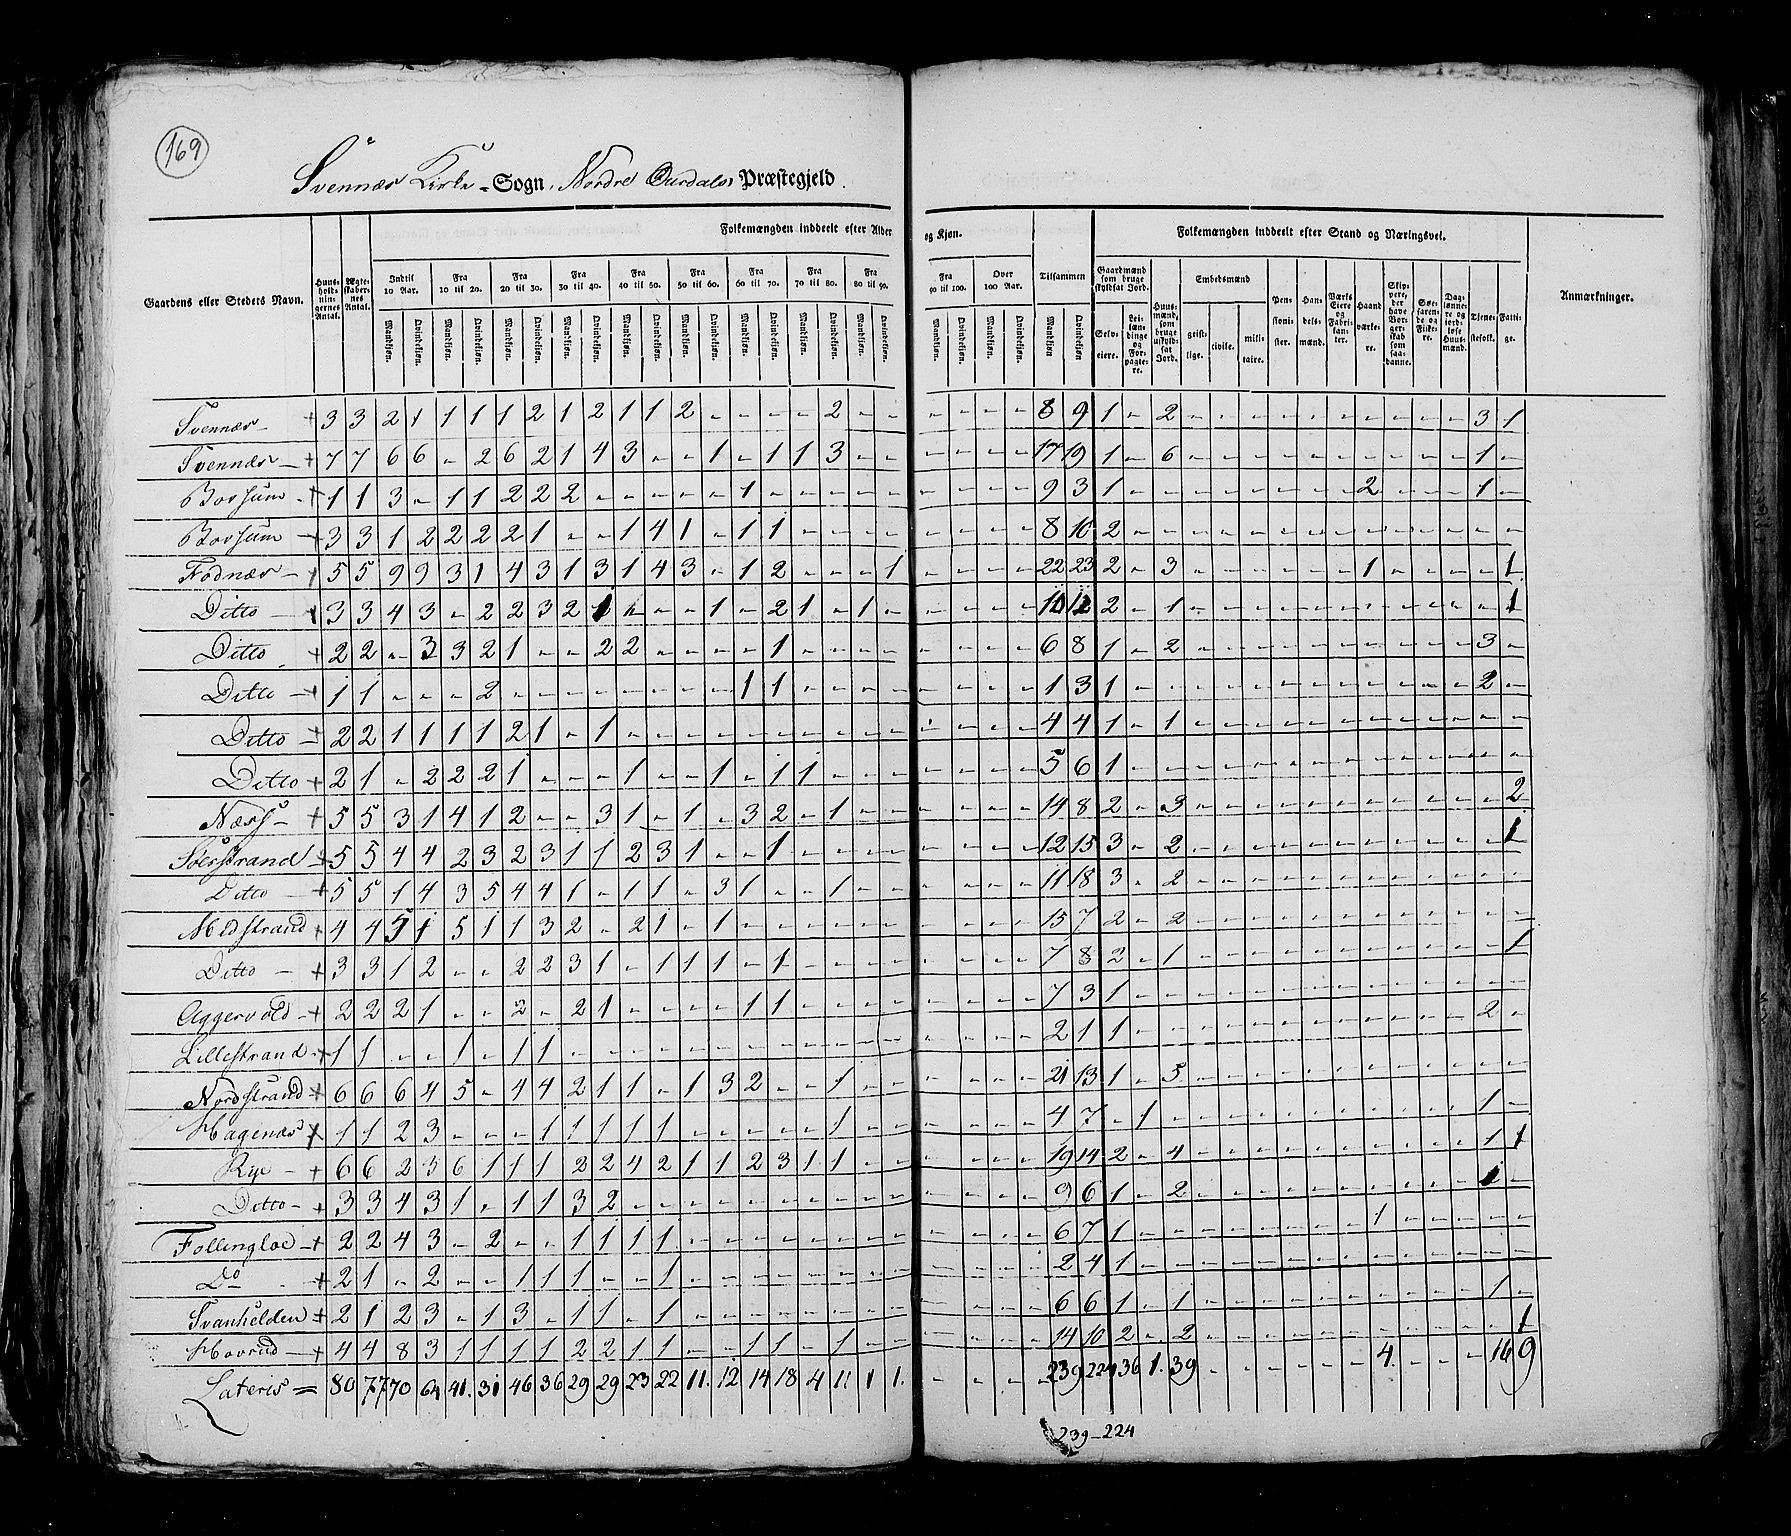 169
Svennæs Kirke-Sogn, Nordre Aurdals Præstegjeld.
Folkemængden inddeelt efter Alder og Kjøn. Folkemængden inddeelt efter Stand og Næringsvei.
Gaardens eller Stedets Navn. Huusholdningernes Antal. Ægteskabernes Antal. Indtil 10 Aar. Fra 10 til 20. Fra 20 til 30. Fra 30 til 40. Fra 40 til 50. Fra 50 til 60. Fra 60 til 70. Fra 70 til 80. Fra 80 til 90. Fra 90 til 100. Over 100 Aar. Tilsammen Gaardmænd som bruge skyldsat Jord. Huusmænd, som bruge uskyldsat Jord. Embedsmænd Pensionister. Handelsmænd. Værks Eiere og Fabrikanter. Haandværkere. Skippere, der have Borgerskab som saadanne. Søefarende og Fiskere. Daglønnere og jordløse Huusmænd. Tjenestefolk. Fattige. Anmærkninger.
Mandkjøn. Qvindekjøn. Mandkjøn. Qvindekjøn. Mandkjøn. Qvindekjøn. Mandkjøn. Qvindekjøn. Mandkjøn. Qvindekjøn. Mandkjøn. Qvindekjøn. Mandkjøn. Qvindekjøn. Mandkjøn. Qvindekjøn. Mandkjøn. Qvindekjøn. Mandkjøn. Qvindekjøn. Mandkjøn. Qvindekjøn. Mandkjøn Qvindekjøn Selveiere. Leilændinge og Forpagtere. geistlige. civile. militaire.
Svennæs - + 3 3 2 1 1 1 1 2 1 2 1 1 2 - - - - 2 - - - - - - 8 9 1 - 2 - - - - - - - - - - 3 1
Svennæs - + 7 7 6 6 - 2 6 2 1 4 3 - - 1 - 1 1 3 - - - - - - 17 19 1 - 6 - - - - - - - - - - 1 -
Borsum - + 1 1 3 - 1 1 2 2 2 - - - - - 1 - - - - - - - - - 9 3 1 - - - - - - - - 2 - - - 1 -
Borsum - + 3 3 1 2 2 2 2 1 - - 1 4 1 - 1 1 - - - - - - - - 8 10 2 - - - - - - - - - - - - - -
Fodnæs - + 5 5 9 9 3 1 4 3 1 3 1 4 3 - 1 2 - - - 1 - - - - 22 23 2 - 3 - - - - - - 1 - - - - 1
Ditto - + 3 3 4 3 - 2 2 3 2 1 - - - 1 - 2 1 - 1 - - - - - 10 12 2 - 1 - - - - - - - - - - - 1
Ditto + 2 2 - 3 3 2 1 - - 2 2 - - - - 1 - - - - - - - - 6 8 1 - 2 - - - - - - - - - - 3 -
Ditto - + 1 1 - - - 2 - - - - - - - - 1 1 - - - - - - - - 1 3 1 - - - - - - - - - - - - 2 -
Ditto - + 2 2 1 1 1 1 2 1 - 1 - - - - - - - - - - - - - - 4 4 1 - 1 - - - - - - - - - - - -
Ditto + 2 1 - 2 2 2 1 - - - 1 - - 1 - 1 1 - - - - - - - 5 6 1 - - - - - - - - - - - - - -
Næss - + 5 5 3 1 4 1 2 - - 3 1 - 1 - 3 2 - 1 - - - - - - 14 8 2 - 3 - - - - - - - - - - - 2
+ 5 5 4 4 2 3 2 3 1 1 2 3 1 - - 1 - - - - - - - - 12 15 3 - 2 - - - - - - - - - - - 1
Ditto - + 5 5 1 4 3 5 4 4 1 - 1 1 - 3 1 - - 1 - - - - - - 11 18 3 - 2 - - - - - - - - - - - -
Midstrand + 4 4 5 1 5 1 1 3 2 - 2 1 - 1 - - - - - - - - - - 15 7 2 - 2 - - - - - - - - - - - -
Ditto - + 3 3 1 2 - - 2 2 3 1 - 1 1 1 - 1 - - - - - - - - 7 8 2 - 1 - - - - - - - - - - - 1
Aggervold - + 2 2 2 1 - - 2 - 2 1 - - - - 1 1 - - - - - - - - 7 3 1 - - - - - - - - - - - - - -
Lillestrand - + 1 1 - - 1 - 1 1 - - - - - - - - - - - - - - - - 2 1 1 - - - - - - - - - - - - 2 -
Nordstrand + 6 6 6 4 5 - 4 4 2 1 1 - 1 3 2 - - 1 - - - - - - 21 13 1 - 5 - - - - - - - - - - - -
Hagenæs + 1 1 2 3 - - - 1 1 1 1 1 - - - - - 1 - - - - - - 4 7 - 1 - - - - - - - - - - - 1 -
Rye - + 6 6 2 3 6 1 1 1 2 2 4 2 1 1 2 3 1 1 - - - - - - 19 14 2 - 4 - - - - - - - - - - 1 1
Ditto - + 3 3 4 3 1 - 1 1 3 2 - - - - - - - - - - - - - - 9 6 1 - 2 - - - - - - - - - - 1 -
Follingloe - + 2 2 4 3 - 2 - - 1 1 1 1 - - - - - - - - - - - - 6 7 1 - - - - - - - - 1 - - - - -
Do - + 2 1 - 2 - - 1 1 1 - - 1 - - - - - - - - - - - - 2 4 1 - - - - - - - - - - - - - -
Svanhelden + 2 1 2 3 - 1 3 - 1 1 - 1 - - - - - - - - - - - - 6 6 1 - 1 - - - - - - - - - - 1 -
Hovrud - + 4 4 8 3 1 1 1 1 2 2 1 1 - - 1 1 - 1 - - - - - - 14 10 2 - 2 - - - - - - - - - - - 1
Lateris = 80 77 70 64 41. 31 46 36 29 29 23 22 11. 12 14 18 4 11 1 1. - - - - 239 224 36 1. 39 - - - - - - 4. - - - 16 9
239-224